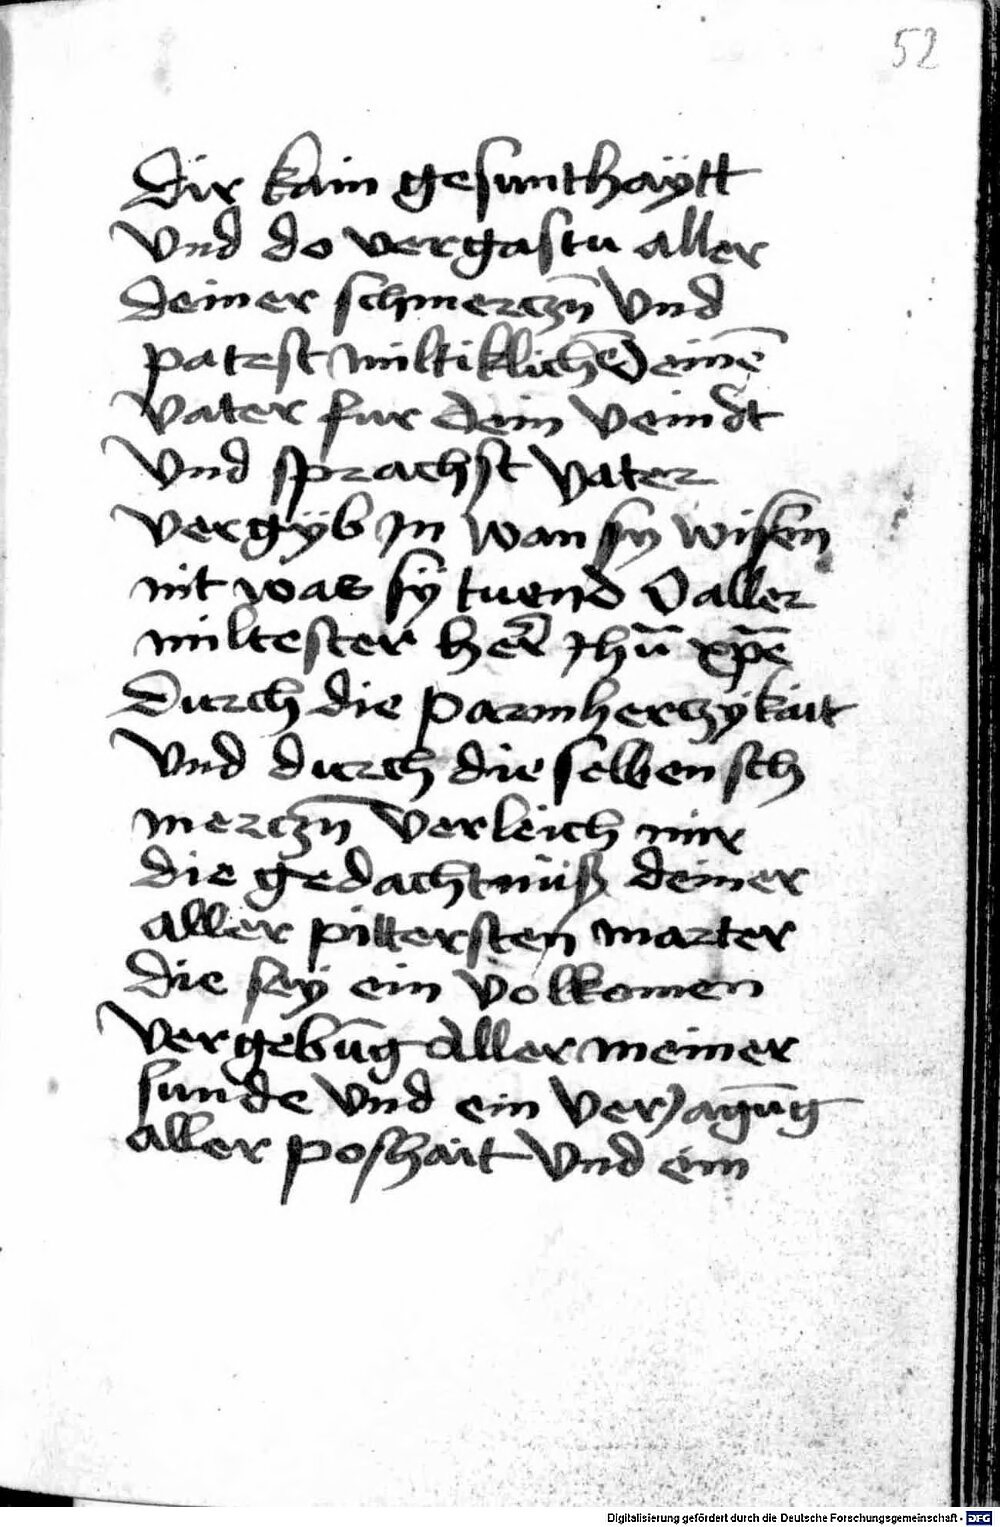 52
Dir kain gesunthaÿtt
Vnd do vergastu aller
Deiner schmerczn̄ Vnd
patest miltiklichē Deinē
Vater fur Dein Veindt
Vnd sprachst Vater
Vergÿb Jn wan sy wisen
nit was sÿ tuend O aller
miltester her̄ Jhū xp̄e
Durch die parmherczÿkait
Vnd durch die selben sch
merczn̄ Verleich mir
die gedachtnüß deiner
aller pittersten marter
Die sey ein Volkomen
Vergebūg aller meiner
sunde Vnd ein Verjagūg
aller poshait Vnd ein
Digitalisierung gefördert durch die Deutsche Forschungsgemeinschaft - DFG